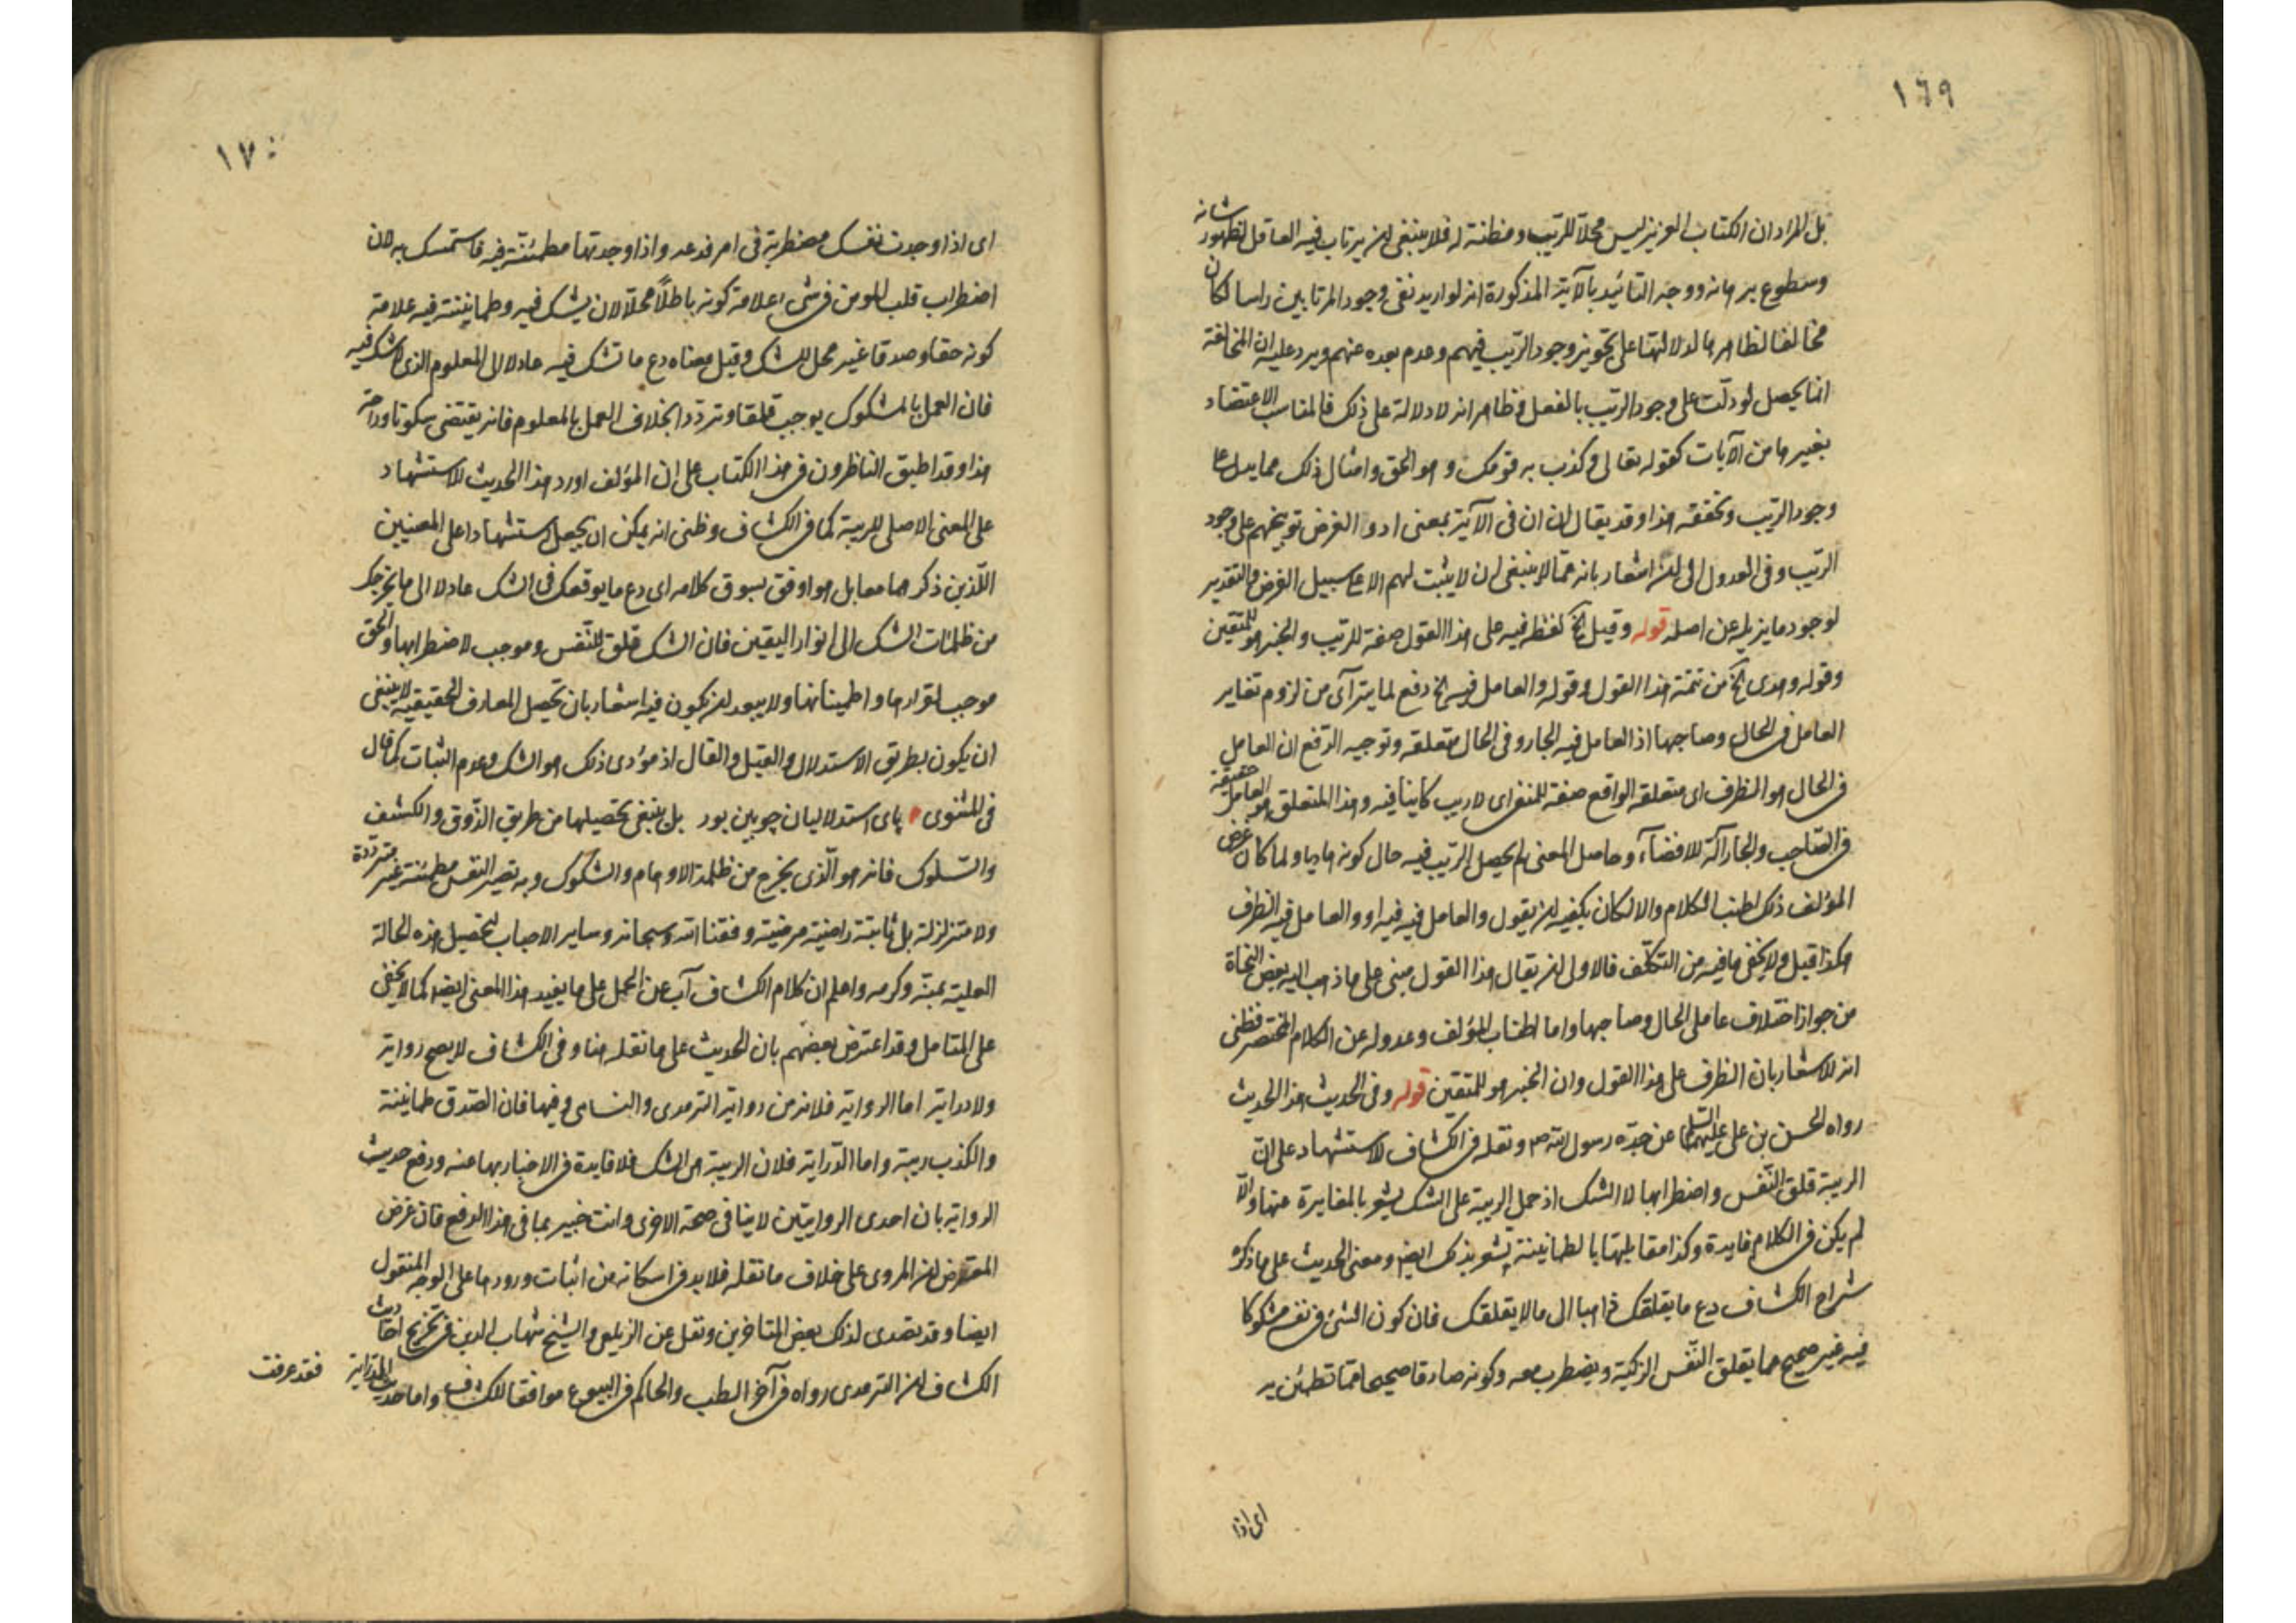 ١٦٩
بل المراد ان الكتاب العزيز ليس محلا للريب ومظنة له فلا ينبغى ان يرتاب فيه العاقل لظهور شانه
وسطوع برهانه ووجه التائيد بالآية المذكورة انه لو اريد نفى وجود المرتابين راسا لكان
مخالفا لظاهرها لدلالتها على تجويز وجود الريب فيهم وعدم بعده عنهم ويرد عليه ان المخالفة
انما يحصل لو دلّت على وجود الريب بالفعل وظاهر انه لا دلالة على ذلك فالمناسب الاعتضاد
بغيرها من الآيات كقوله تعالى وكذب به قومك وهو الحق وامثال ذلك مما يدل على
وجود الريب وتحققه هذا وقد يقال ان ان فى الآية بمعنى اذ والغرض توبيخهم على وجود
الريب وفى العدول الى ان اشعار بانه مما لا ينبغى ان لا يثبت لهم الا على سبيل الفرض والتقدير
لوجود ما يزيله عن اصله قوله وقيل الخ لفظ فيه على هذا القول صفة للريب والخبر هو للمتقين
وقوله وهدى الخ من تتمة هذا القول وقوله والعامل فيه الخ دفع لما يترآى من لزوم تغاير
العامل فى الحال وصاحبها اذ العامل فيه الجار وفى الحال متعلقه وتوجيه الدفع ان العامل
فى الحال هو الظرف اى متعلقه الواقع صفة للمنفى اى لا ريب كاينا فيه وهذا المتعلق هو العامل حقيقة
فى الصاحب والجار آلة للافضآء وحاصل المعنى لم يحصل الريب فيه حال كونه هاديا ولما كان غرض
المؤلف ذلك اطنب الكلام والا لكان يكفيه ان يقول والعامل فيه فيه او والعامل فيه الظرف
هكذا قيل ولا يخفى ما فيه من التكلف فالاولى ان يقال هذا القول مبنى على ما ذهب اليه بعض النحاة
من جواز اختلاف عاملى الحال وصاحبها واما اطناب المؤلف وعدوله عن الكلام المختصر فظنى
انه للاشعار بان الظرف على هذا القول وان الخبر هو للمتقين قوله وفى الحديث هذا الحديث
رواه الحسن بن على عليهما السلم عن جدّه رسول الله ص ونقله فى الكشاف لاستشهاد على انّ
الريبة قلق النّفس واضطرابها لا الشك اذ حمل الريبة على الشك يشعر بالمغايرة عنها والّا
لم يكن فى الكلام فايدة وكذا مقابلهتا بالطمانينة يشعر بذلك ايضا ومعنى الحديث على ما ذكره
شراح الكشاف دع ما يقلقك ذاهبا الى ما لا يقلقك فان كون الشئ فى نفسه مشكوكا
فيه غير صحيح مما يقلق النّفس الزكية ويضطرب معه وكونه صادقا صحيحا مما تطمئن به
اى اذا
١٧٠
اى اذا وجدت نفسك مضطربة فى امر فدعه واذا وجدتها مطمئنّة فيه فاستمسك به لان
اضطراب قلب المومن فى شئ علامة كونه باطلاً محلا لان يشك فيه وطمانينته فيه علامة
كونه حقا وصدقا غير محل للشك وقيل معناه دع ما تشك فيه عادلا الى المعلوم الذى لا شك فيه
فان العمل بالمشكوك يوجب قلقا وتردّدا بخلاف العمل بالمعلوم فانه يقتضى سكونا وراحة
هذا وقد اطبق الناظرون فى هذا الكتاب على ان المؤلف اورد هذا الحديث للاستشهاد
على المعنى الاصلى للريبة كما فى الكشاف وظنى انه يمكن ان يجعل استشهادا على المعنيين
اللّذين ذكرهما معا بل هو اوفق بسوق كلامه اى دع ما يوقعك فى الشك عادلا الى ما يخرجك
من ظلمات الشك الى انوار اليقين فان الشك قلق للنّفس وموجب لاضطرابها والحق
موجب لقرارها واطمينانها ولا يبعد ان يكون فيه اشعار بان تحصيل المعارف الحقيقيه لا ينبغى
ان يكون بطريق الاستدلال والقيل والقال اذ مؤدى ذلك هو الشك وعدم الثبات كما قال
فى المثنوى پاى استدلاليان چوبين بود بل ينبغى تحصيلها من طريق الذّوق والكشف
والسّلوك فانه هو الّذى يخرج من ظلمة الاوهام والشكوك وبه تصير النفس مطمئنة غير متردّدة
ولا متزلزلة بل ثابتة راضية مرضية وفقنا الله سبحانه وساير الاحباب لتحصيل هذه الحالة
العلية بمنّه وكرمه واعلم ان كلام الكشاف آب عن الحمل على ما يفيد هذا المعنى ايضا كما لا يخفى
على المتامل وقد اعترض بعضهم بان الحديث على ما نقله هنا وفى الكشاف لا يصح رواية
ولا دراية اما الرواية فلانه من رواية الترمدى والنسايى وفيها فان الصّدق طمانينة
والكذب ريبة واما الدّراية فلان الريبة هى الشك فلا فايدة فى الاخبار بها عنه ودفع حديث
الرواية بان احدى الروايتين لا ينافى صحة الاخرى وانت خبير بما فى هذا الدفع فان غرض
المعترض ان المروى على خلاف ما نقله فلا بد فى اسكاته من اثبات ورودها على الوجه المنقول
ايضا وقد تصدى لذلك بعض المتاخرين ونقل عن الزيلعى والشيخ شهاب الدين فى تخريج احاديث
الكشاف ان الترمدى رواه فى آخر الطب والحاكم فى البيوع موافقا للكشاف واما حديث الدّراية
فقد عرفت